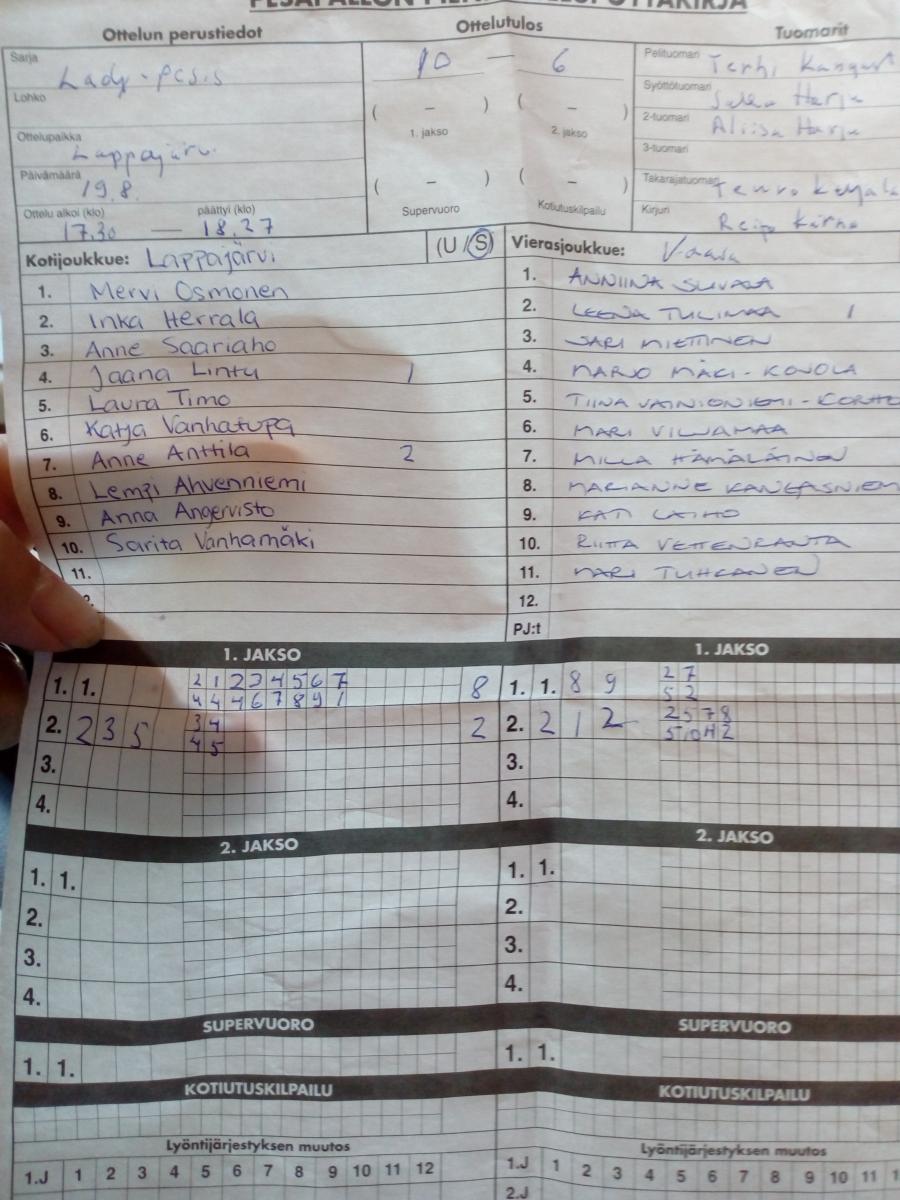 Ottelun perustiedot
Ottelutulos
Tuomarit
Sarja Lady-pesis
Lohko
Ottelupaikka Lappajärvi
Päivämäärä 19.8.
Ottelu alkoi (klo) päättyi (klo)
17.30 — 18.27
10 — 6
( – ) ( – )
1. jakso 2. jakso
( – ) ( – )
Supervuoro Kotiutuskilpailu
Pelituomari Terhi
Syöttötuomari Harju
2-tuomari Aliisa Harju
3-tuomari
Takarajatuomari
Kirjuri
Kotijoukkue: Lappajärvi (U / S)
1. Mervi Osmonen
2. Inka Herrala
3. Anne Saariaho
4. Jaana Lintu 1
5. Laura Timo
6. Katja Vanhatupa
7. Anne Anttila 2
8. Lempi Ahvenniemi
9. Anna Angervisto
10. Sarita Vanhamäki
11.
Vierasjoukkue: Vaasa
1. ANNIINA
2. LEENA TULIMAA 1
3. SARI MIETTINEN
4. MARJO MÄKI-KOJOLA
5. TIINA VAINIONIEMI-KORHO
6. MARI VILJAMAA
7. MILLA HÄMÄLÄINEN
8. MARIANNE KANGASNIEM
9. KATI LAIHO
10. RIITTA VETTENRANTA
11. MARI TUHKANEN
12.
PJ:t
1. JAKSO
1. 1. 2 1 2 3 4 5 6 7
4 4 4 6 7 8 9 1 8
2. 2 3 5 3 4
4 5 2
3.
4.
1. JAKSO
1. 1. 8 9 2 7
5 2
2. 2 1 2 2 5 7 8
5 10 11 2
3.
4.
2. JAKSO
1. 1.
2.
3.
4.
2. JAKSO
1. 1.
2.
3.
4.
SUPERVUORO
1. 1.
SUPERVUORO
1. 1.
KOTIUTUSKILPAILU
KOTIUTUSKILPAILU
Lyöntijärjestyksen muutos
1.J 1 2 3 4 5 6 7 8 9 10 11 12
Lyöntijärjestyksen muutos
1.J 1 2 3 4 5 6 7 8 9 10 11
2.J